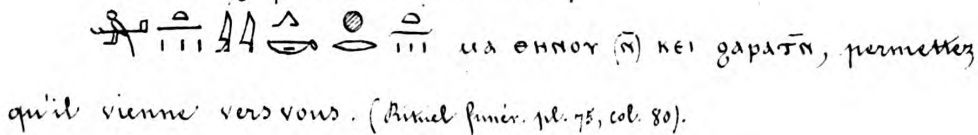 ⲙⲁ ⲑⲏⲛⲟⲩ (ⲛ̄) ⲕⲉⲓ ϩⲁⲣⲁⲧⲛ̄, permettez
qu'il vienne vers vous. (Rituel funér. pl. 75, col. 80).